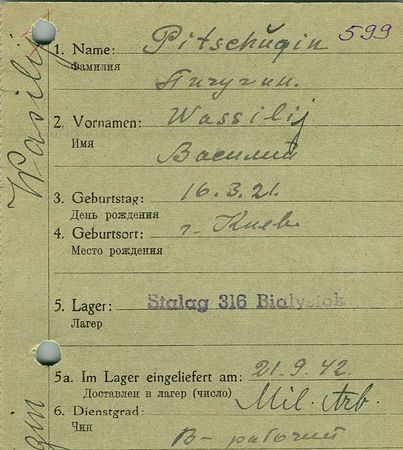 1. Name: Pitschugin 599
Фамилия
Пичугин.
2. Vornamen: Wassilij
Имя
Василий
3. Geburtstag: 16.3.21.
День рождения
4. Geburtsort: г. Киев
Место рождения
5. Lager: Stalag 316 Bialystok
Лагерь
5a. Im Lager eingeliefert am: 21.9.42.
Доставлен в лагерь (число)
6. Dienstgrad: Mil. Arb.
Чин
В-рабочий
Wasilij
gin